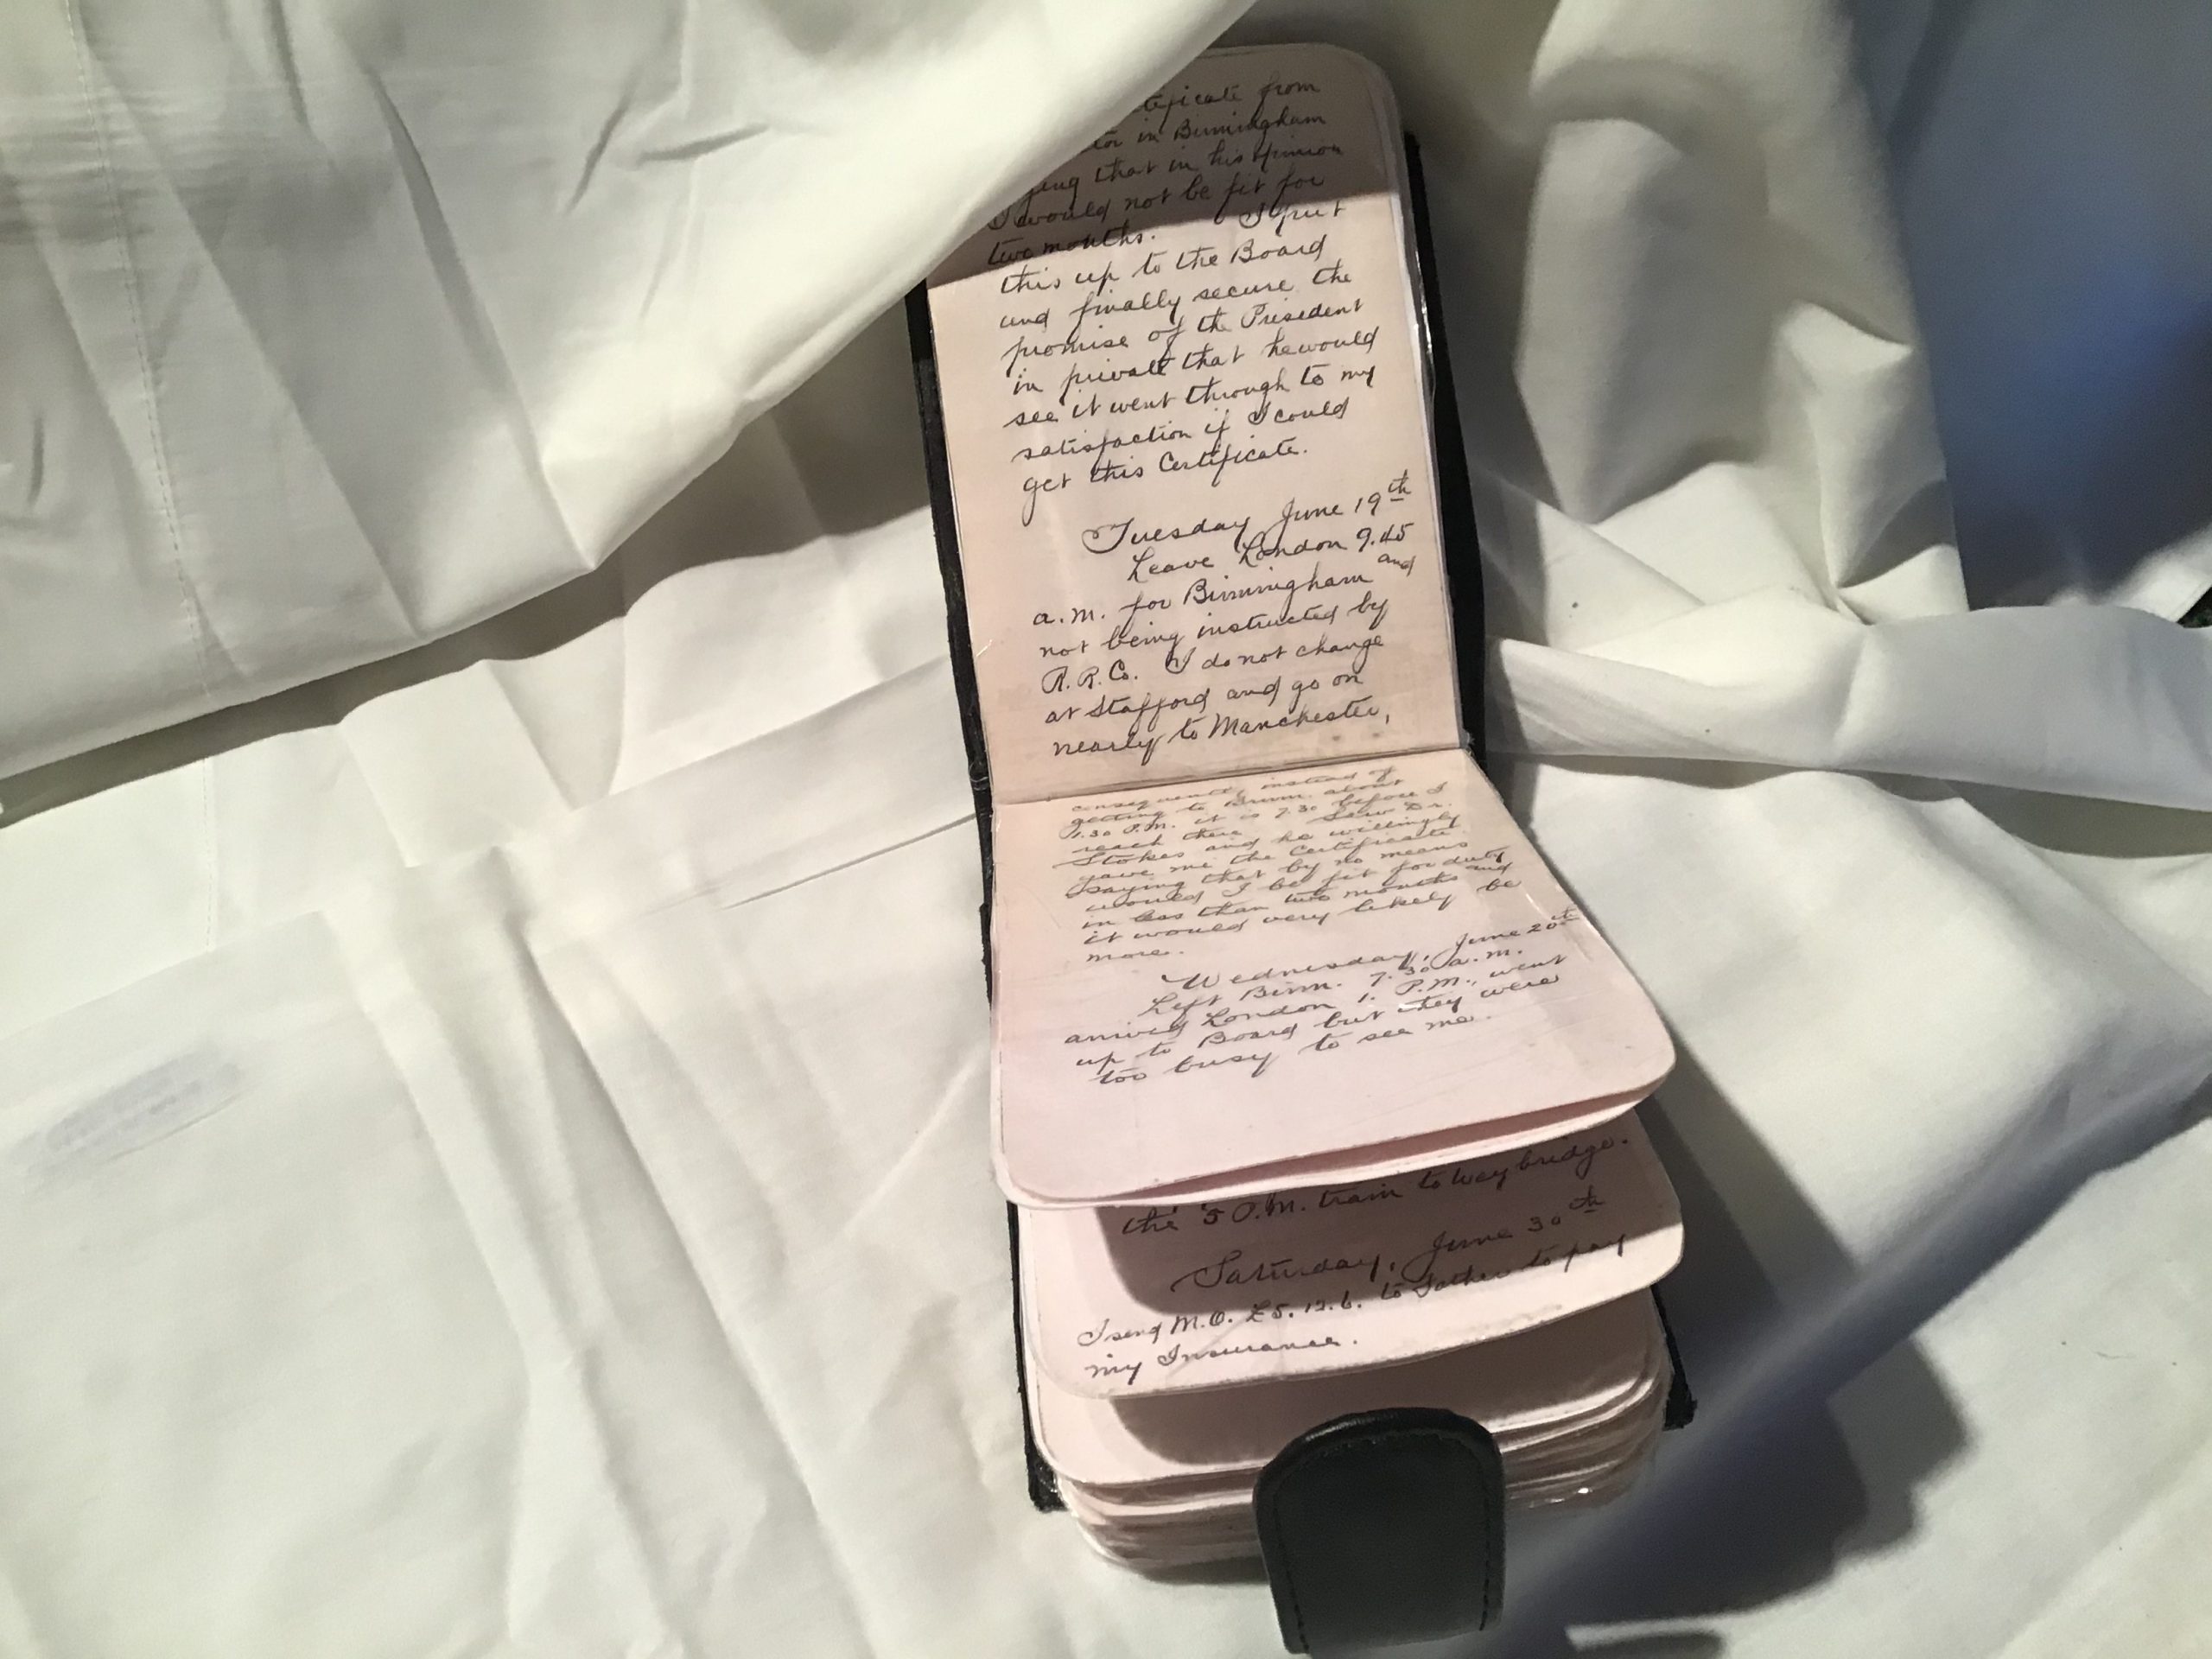 tificate from
tor in Birmingham
ying that in his opinion
I would not be fit for
two months. I put
this up to the Board
and finally secure the
promise of the President
in private that he would
see it went through to my
satisfaction if I could
get this Certificate.
Tuesday June 19th
Leave London 9.45
a.m. for Birmingham and
not being instructed by
R.R.Co. I do not change
at Stafford and go on
nearly to Manchester,
consequently instead of
getting to Birm. about
1.30 P.M. it is 7.30 before I
reach there. Saw Dr.
Stokes and he willingly
gave me the Certificate
saying that by no means
would I be fit for duty
in less than two months and
it would very likely be
more.
Wednesday, June 20th
Left Birm. 7.30 a.m.
arrived London 1. P.M., went
up to Board but they were
too busy to see me.
the 5 P.M. train to Weybridge.
Saturday, June 30th
I send M.O. £5.12.6. to Father to pay
my Insurance.